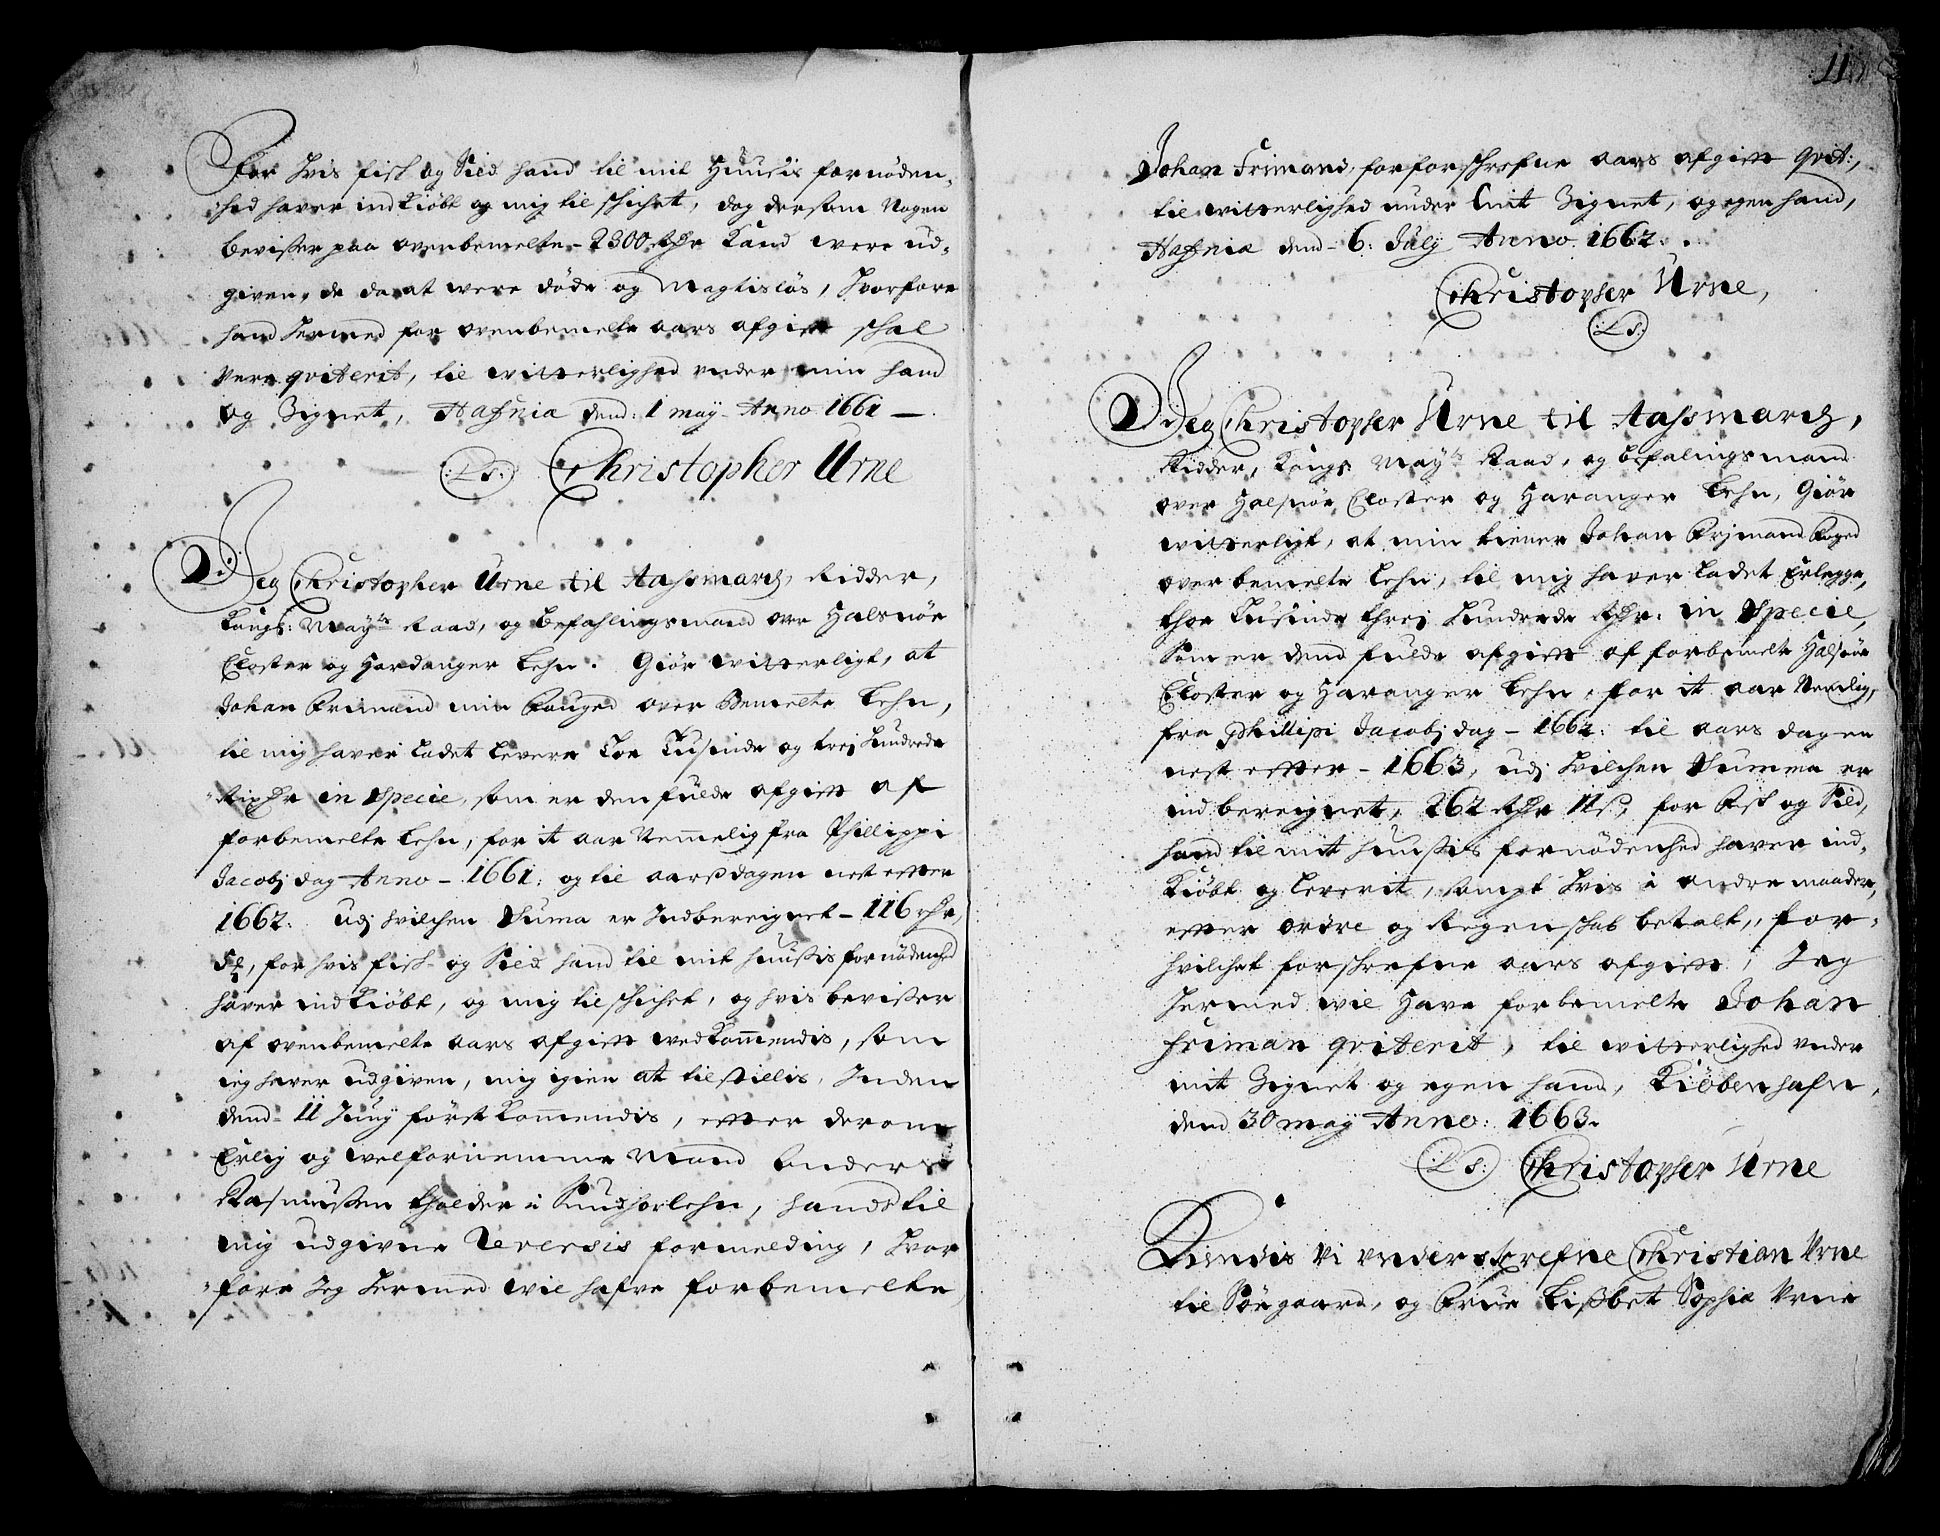 For hvis fisk og Sild hand til mit Huusis fornøden,,
hed haver indkiøbt og mig til schichet, dog dersom Nogen
bevisser paa ovenbemelte 2300 Rdr kand were ud,,
given, de da at were døde og Magtisløs, hvorfore
hand hermed for ovenbemelte aars afgift schal
Vere qviterit, til witterlighed under min hand
og Signet, Hafnia dend: 1 may Anno 1661 —
(:LS:) Christopher Urne
Jeg Christopher Urne til Aassmarch, Ridder,
Kongs: Mayts Raad, og befahlingsmand over Halsnøe
Closter og Hardanger Lehn. Giør witterligt, at
Johan Frimand min Fouged over Bemelte Lehn,
til mig haver ladet levere Toe Tusinde og trej hundrede
Rixdr in specie, som er den fulde afgift af
forbemelte Lehn, for it aar Nemmelig fra Phillippi
Jacobj dag Anno - 1661: og til aarsdagen nest efter
1662. Udj hvilchen Suma er Indbereignet - 116 rdr,
5½, for hvis fisk og Sild hand til mit huusis fornødenhed
haver indkiøbt, og mig til schichet, og hvis bevisser
af ovenbemelte aars afgift wedkommendis, som
ieg haver udgiven, mig igien at tilstillis, Inden
dend 11 Junij førstkommendis, efter derom
Erlig og welfornemme Mand Anders
Rasmussen tholder i Sundhorlehn, hands til
mig udgivne Reversis formelding, hvor
fore Jeg hermed wil hafve forbemelte
11
Johan Frimand, forforschrefne aars afgift qvit:,
til witterlighed under mit Signet, og egen hand,
Hafnia dend 6. Julij Anno 1662.
Christopher Urne,
(:LS:)
Jeg Christopher Urne til Aassmarch,
Ridder, Kongs Mayts Raad, og befalingsmand
over Halsnøe Closter og Haranger Lehn, Giør
witterligt, at min tiener Johan Frjmand Foged
over bemelte Lehn, til mig haver ladet Erlegge,
thoe Tusinde threj hundrede Rdr. in specie,
Som er dend fulde afgift af forbemelte Halsnøe
Closter og Haranger Lehn, for it aar Nemlig,
fra Phillipi Jacobj dag - 1662: til aars dagen
nest efter - 1663, udj hvilchen Summa er
indbereignet, 262 Rdr for Fisk og Sild,
hand til mit huussis fornødenhed haver ind,
kiøbt og leverit, sampt hvis i andre maader,
efter ordre og Regenskab betalt,, for,
hvilchet forschrefne aars afgift, Jeg
hermed wil Have forbemelte Johan
Friman qviterit, til witterlighed under
mit Signet og egen hand, Kiøbenhafn,
dend 30 may Anno: 1663.
(:LS:) Christopher Urne
Kiendis Vi underskrefne Christian Urne
til Søegaard, og Frue Lissbet Sophia Urne